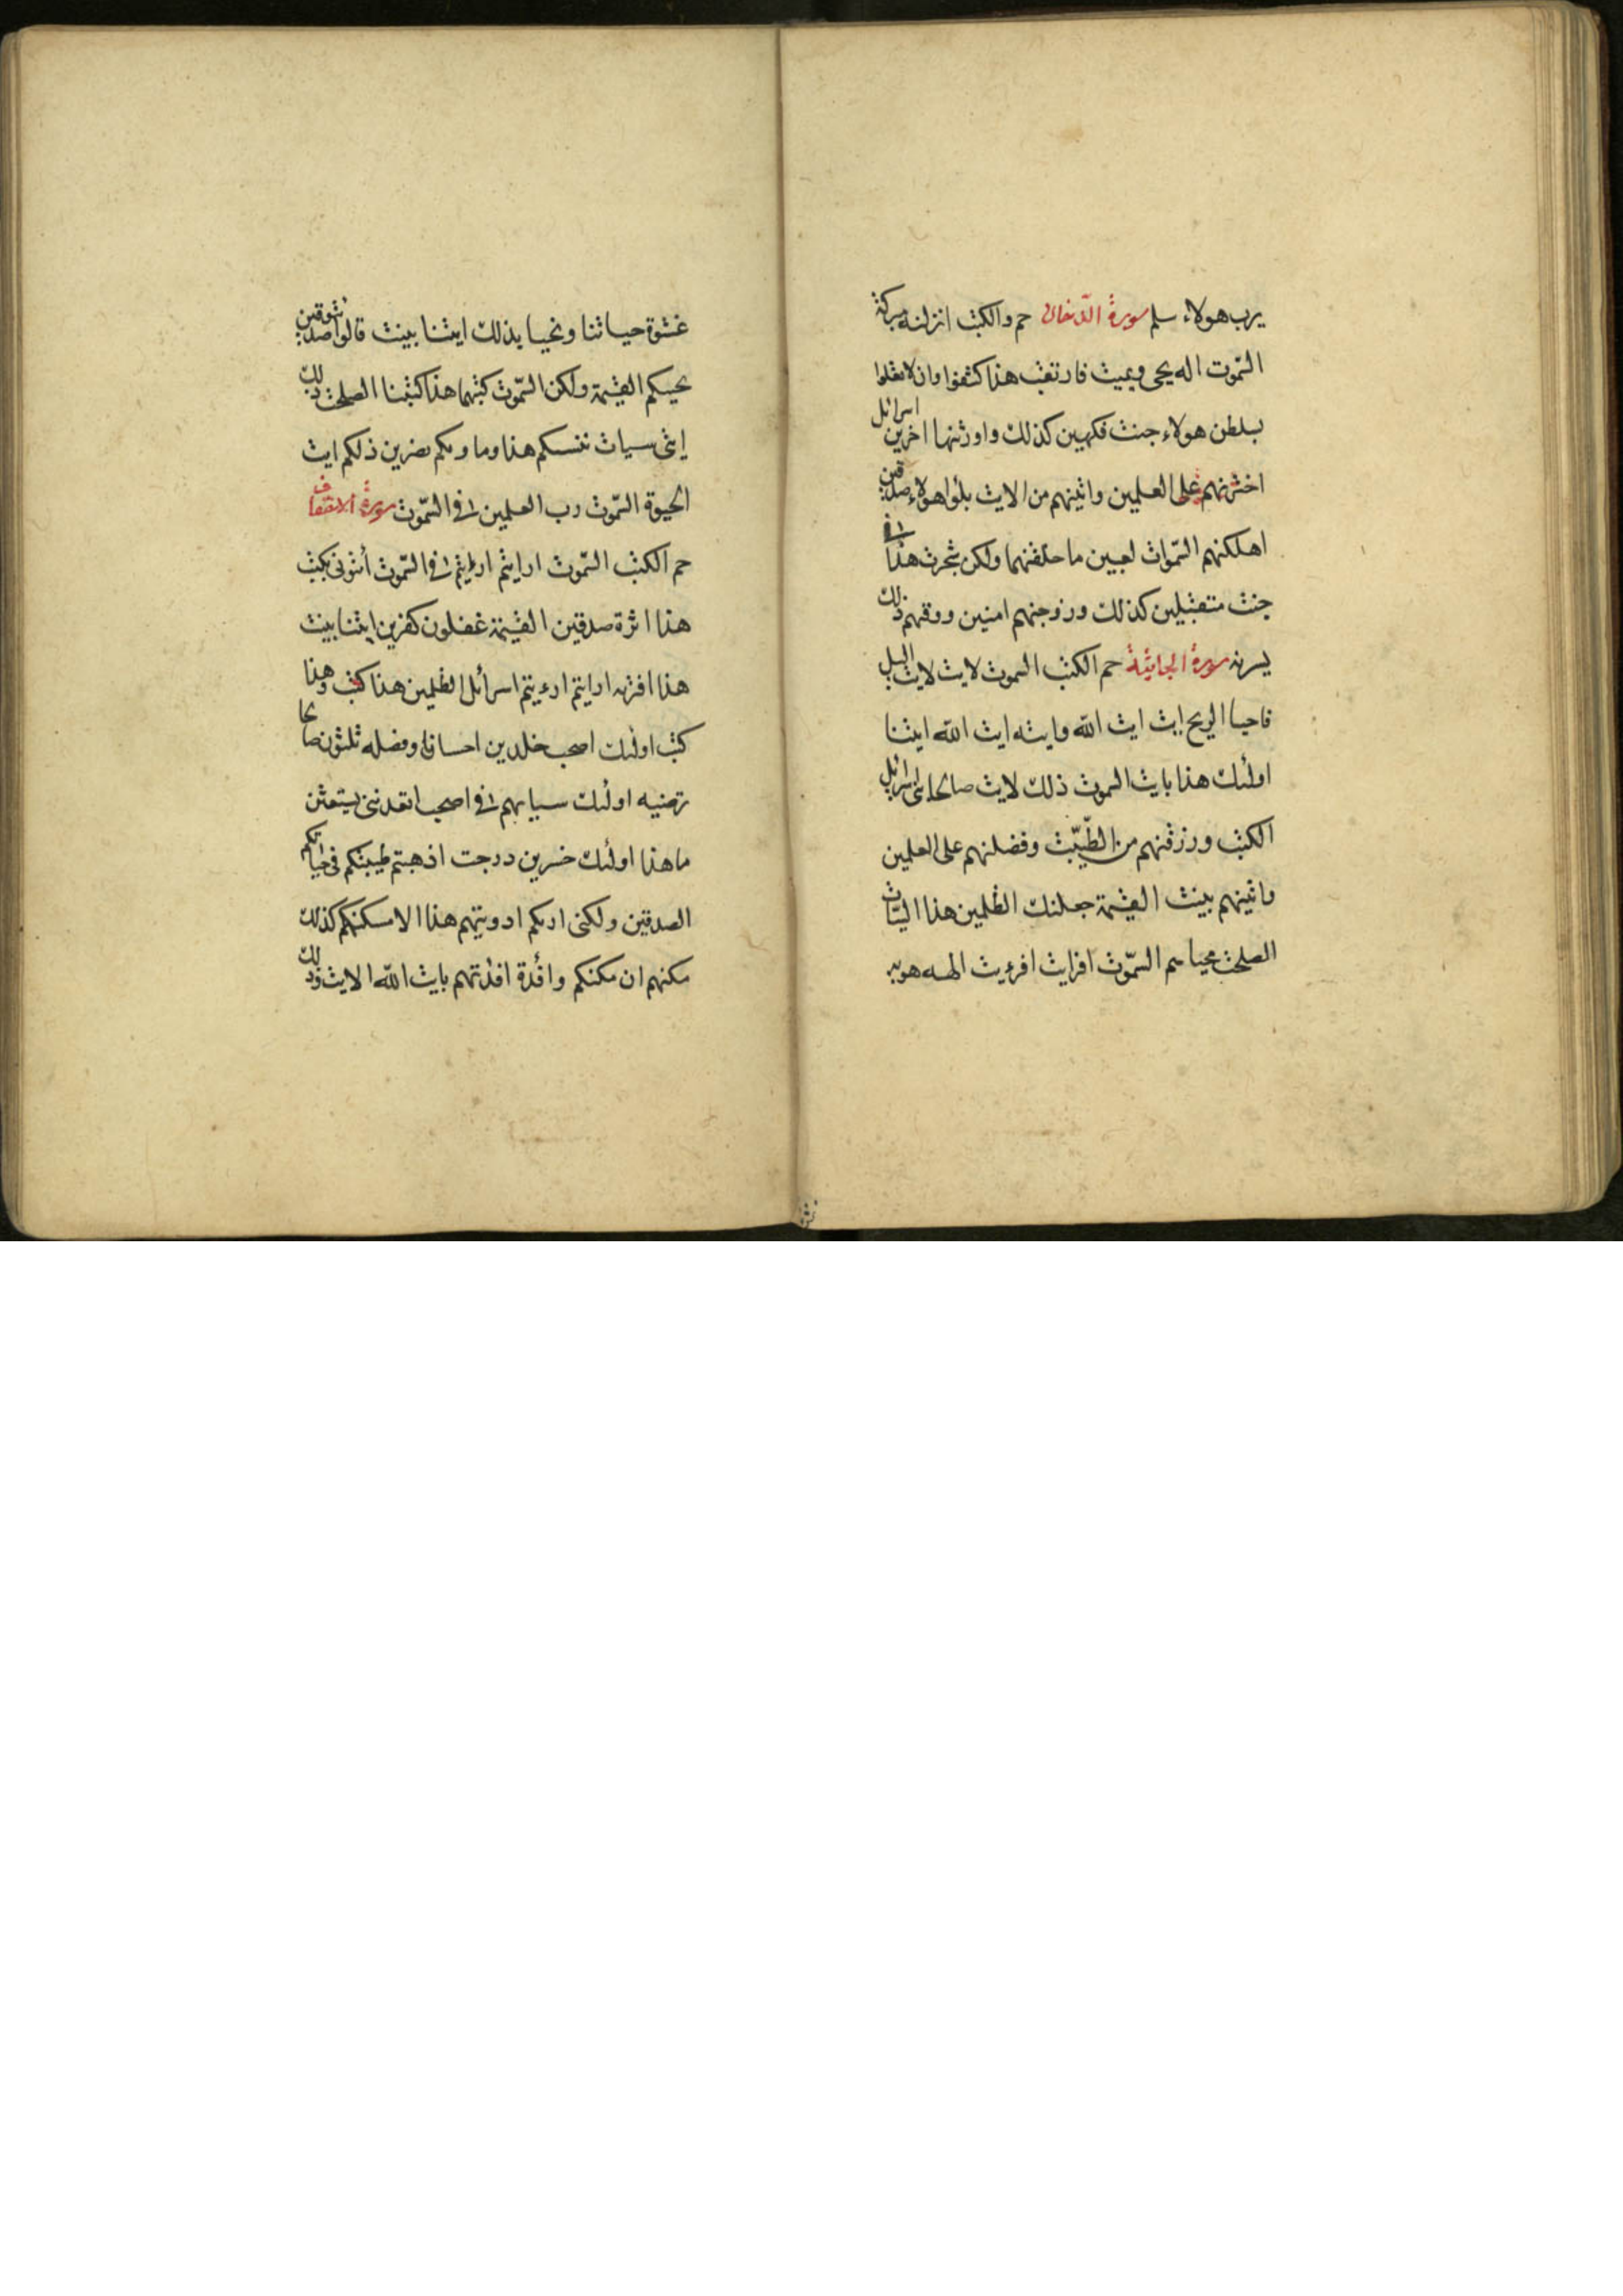 يرب هولاء سلم سورة الدخان حم والكتب انزلنه مبركة
السّموت اله يحى ويميت فارتقب هذا كشفوا وان لا تعلوا
بسلطن هولاء جنت فكهين كذلك واورثنها اخرين اسرائل
اخترنهم على العلمين واتينهم من الايت بلوا هولاء صدقين
اهلكنهم السّموات لعبين ما خلقنهما ولكن شجرت هذا
جنت متقبلين كذلك وزوجنهم امنين ووقهم ذلك
يسرنه سورة الجاثية حم الكتب السموت لايت لايت اليل
فاحيا الريح ايت ايت الله وايته ايت الله ايتنا
اولئك هذا بايت السموت ذلك لايت صالحا بنى اسرائل
الكتب ورزقنهم من الطّيّبت وفضلنهم على العلمين
واتينهم بينت القيمة جعلنك الظلمين هذا السّيات
الصلحت محياهم السّموت افرايت افرءيت الهه هويه
غشوة حياتنا ونحيا بذلك ايتنا بينت قالوا ائتوا صدقين
يحييكم القيمة ولكن السّموت كتبها هذا كتبنا الصلحت ذلك
ايتى سيات ننسكم هذا وما ويكم نصرين ذلكم ايت
الحيوة السّموت رب العلمين السّموت سورة الاحقاف
حم الكتب السّموت ارايتم ارءيتم السّموت أئتونى بكتب
هذا اثرة صدقين القيمة غفلون كفرين ايتنا بينت
هذا افتريه ارايتم ارءيتم اسرائل الظلمين هذا كتب وهذا
كتب اولئك اصحب خلدين احسانا وفصله ثلثون صالحا
ترضيه اولئك سياتهم اصحب اتعدننى يستغيثن
ما هذا اولئك خسرين درجت اذهبتم طيبتكم فى حياتكم
الصدقين ولكنى اريكم اوديتهم هذا الا مسكنهم كذلك
مكنهم ان مكنكم وافئدة افئدتهم بايت الله الايت وذلك